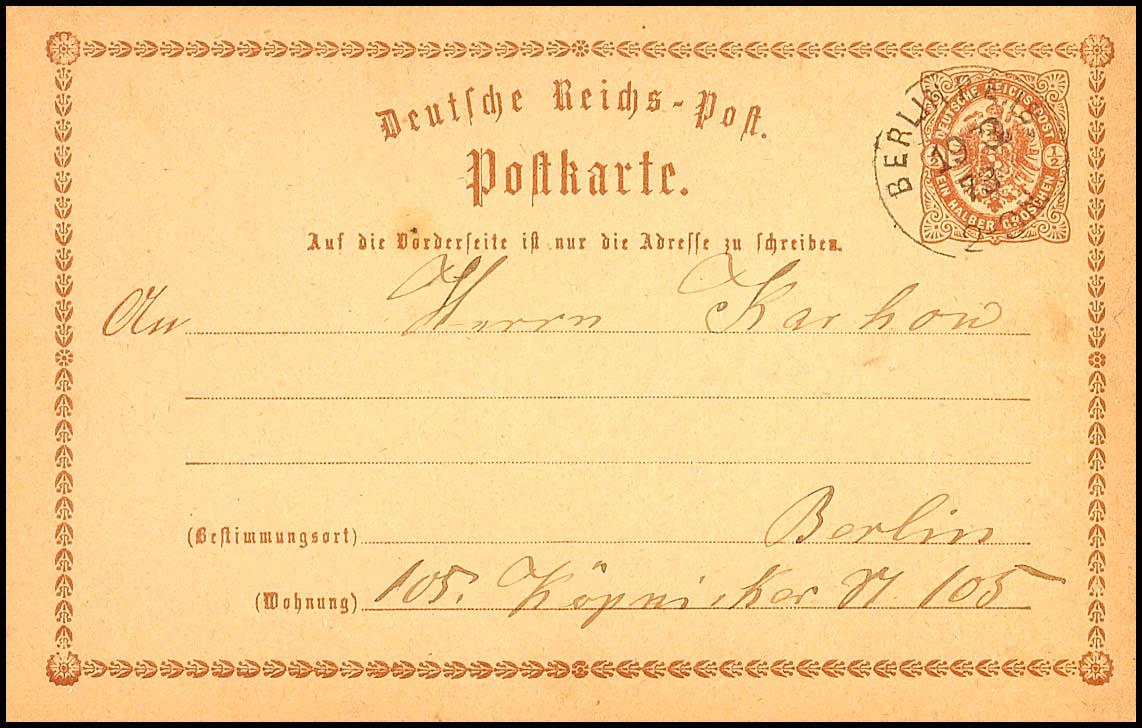 Deutsche Reichs-Post.
Postkarte.
Auf die Vorderseite ist nur die Adresse zu schreiben.
BERLIN
19 3
73
DEUTSCHE REICHS-POST
½ ½
EIN HALBER GROSCHEN
An Herrn Karhow
Berlin
(Bestimmungsort)
(Wohnung) 105. Köpnicker St 105